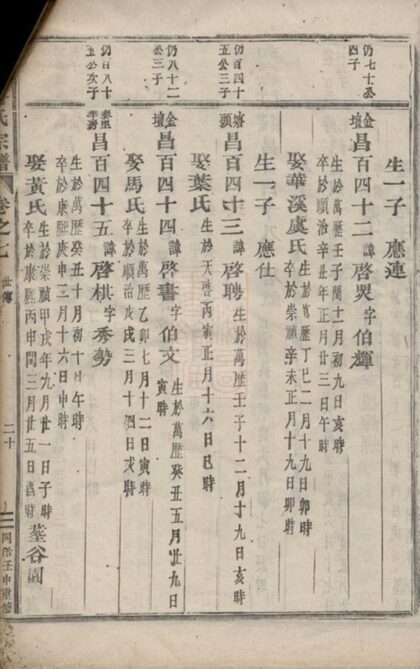 仍七十公
四子
仍百四十
五公三子
仍八十二
公三子
仍百八十
五公次子
生一子 應連
金壇 昌百四十二 諱啓炅字伯輝
生於萬歷壬子閏十一月初九日亥時
卒於順治辛丑年正月廿三日午時
娶華溪虞氏 生於萬歷丁巳二月十九日卯時
卒於崇禎辛未正月十九日卯時
生一子 應仕
塘頭 昌百四十三 諱啓聘 生於萬歷壬子十二月十九日亥時
娶葉氏 生於天啓丙寅正月十六日巳時
金壇 昌百四十四 諱啓書字伯文 生於萬歷癸丑五月廿九日
寅時
娶馬氏 生於萬歷乙卯七月十二日寅時
卒於順治戊戌三月十四日戌時
昌百四十五 諱啓棋字秀勢
生於萬歷癸丑十月初十日午時
卒於康熙庚申三月十六日申時
娶黃氏 生於崇禎甲戌年九月廿一日子時
卒於康熙丙申閏三月廿五日酉時 塟谷園
氏宗譜 卷之七 世傳 二十 同治壬申重修